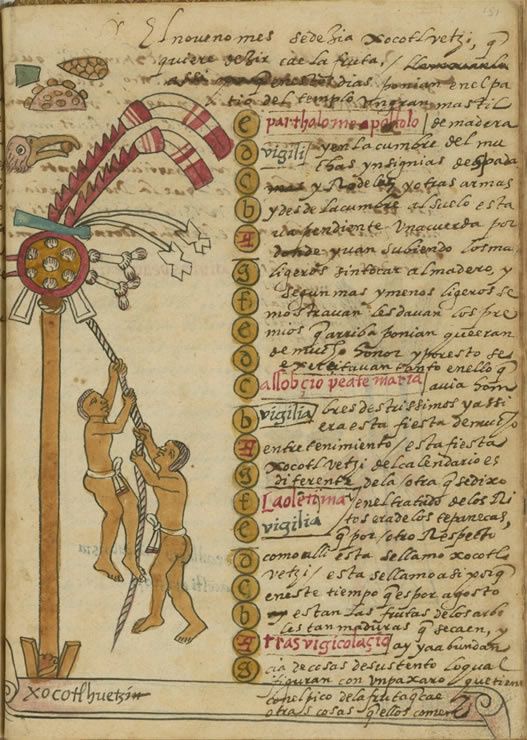 151
El noveno mes se dezia xocotl vetzi, q̃
quiere dezir cae la fruta /
en estos dias ponian en el pa
tio del templo un gran mastil
e parthalome apostolo / de madera
d vigilia y en la cumbre del mu
c chas ynsignias de espada
y Rodelas y otras armas
b y desde la cumbre al suelo esta
A va pendiente una cuerda por
g donde yuan subiendo los mas
ligeros sin tocar al madero, y
f segun mas y menos ligeros se
e mostravan les davan los pre
mios q̃ arriba ponian que eran
d de mucho honor y por esto se
exercitavan tanto en ello q̃
c allobçio peate maria avia hom
b vigilia bres destrissimos y assi
era esta fiesta de mucho
A entretenimiento / esta fiesta
g xocotl vetzi del calendario es
diferente de la otra q̃ se dixo
f Laolenima en el tratado de los Ri
e vigilia tos era de los tepanecas,
q̃ por otro Respecto
d como alli esta se llamo xocotl
c vetzi / esta se llamo asi porq̃
en este tiempo q̃ es por agosto
b estan las frutas de los arbo
les tan maduras q̃ se caen, y
A trasvigicolaçio ay ya abundan
g cia de cosas de sustento lo qual
figuran con un paxaro que tiene
con el pico de la fruta q̃ cae
otras cosas q̃ ellos comen
xocotlhuetzin